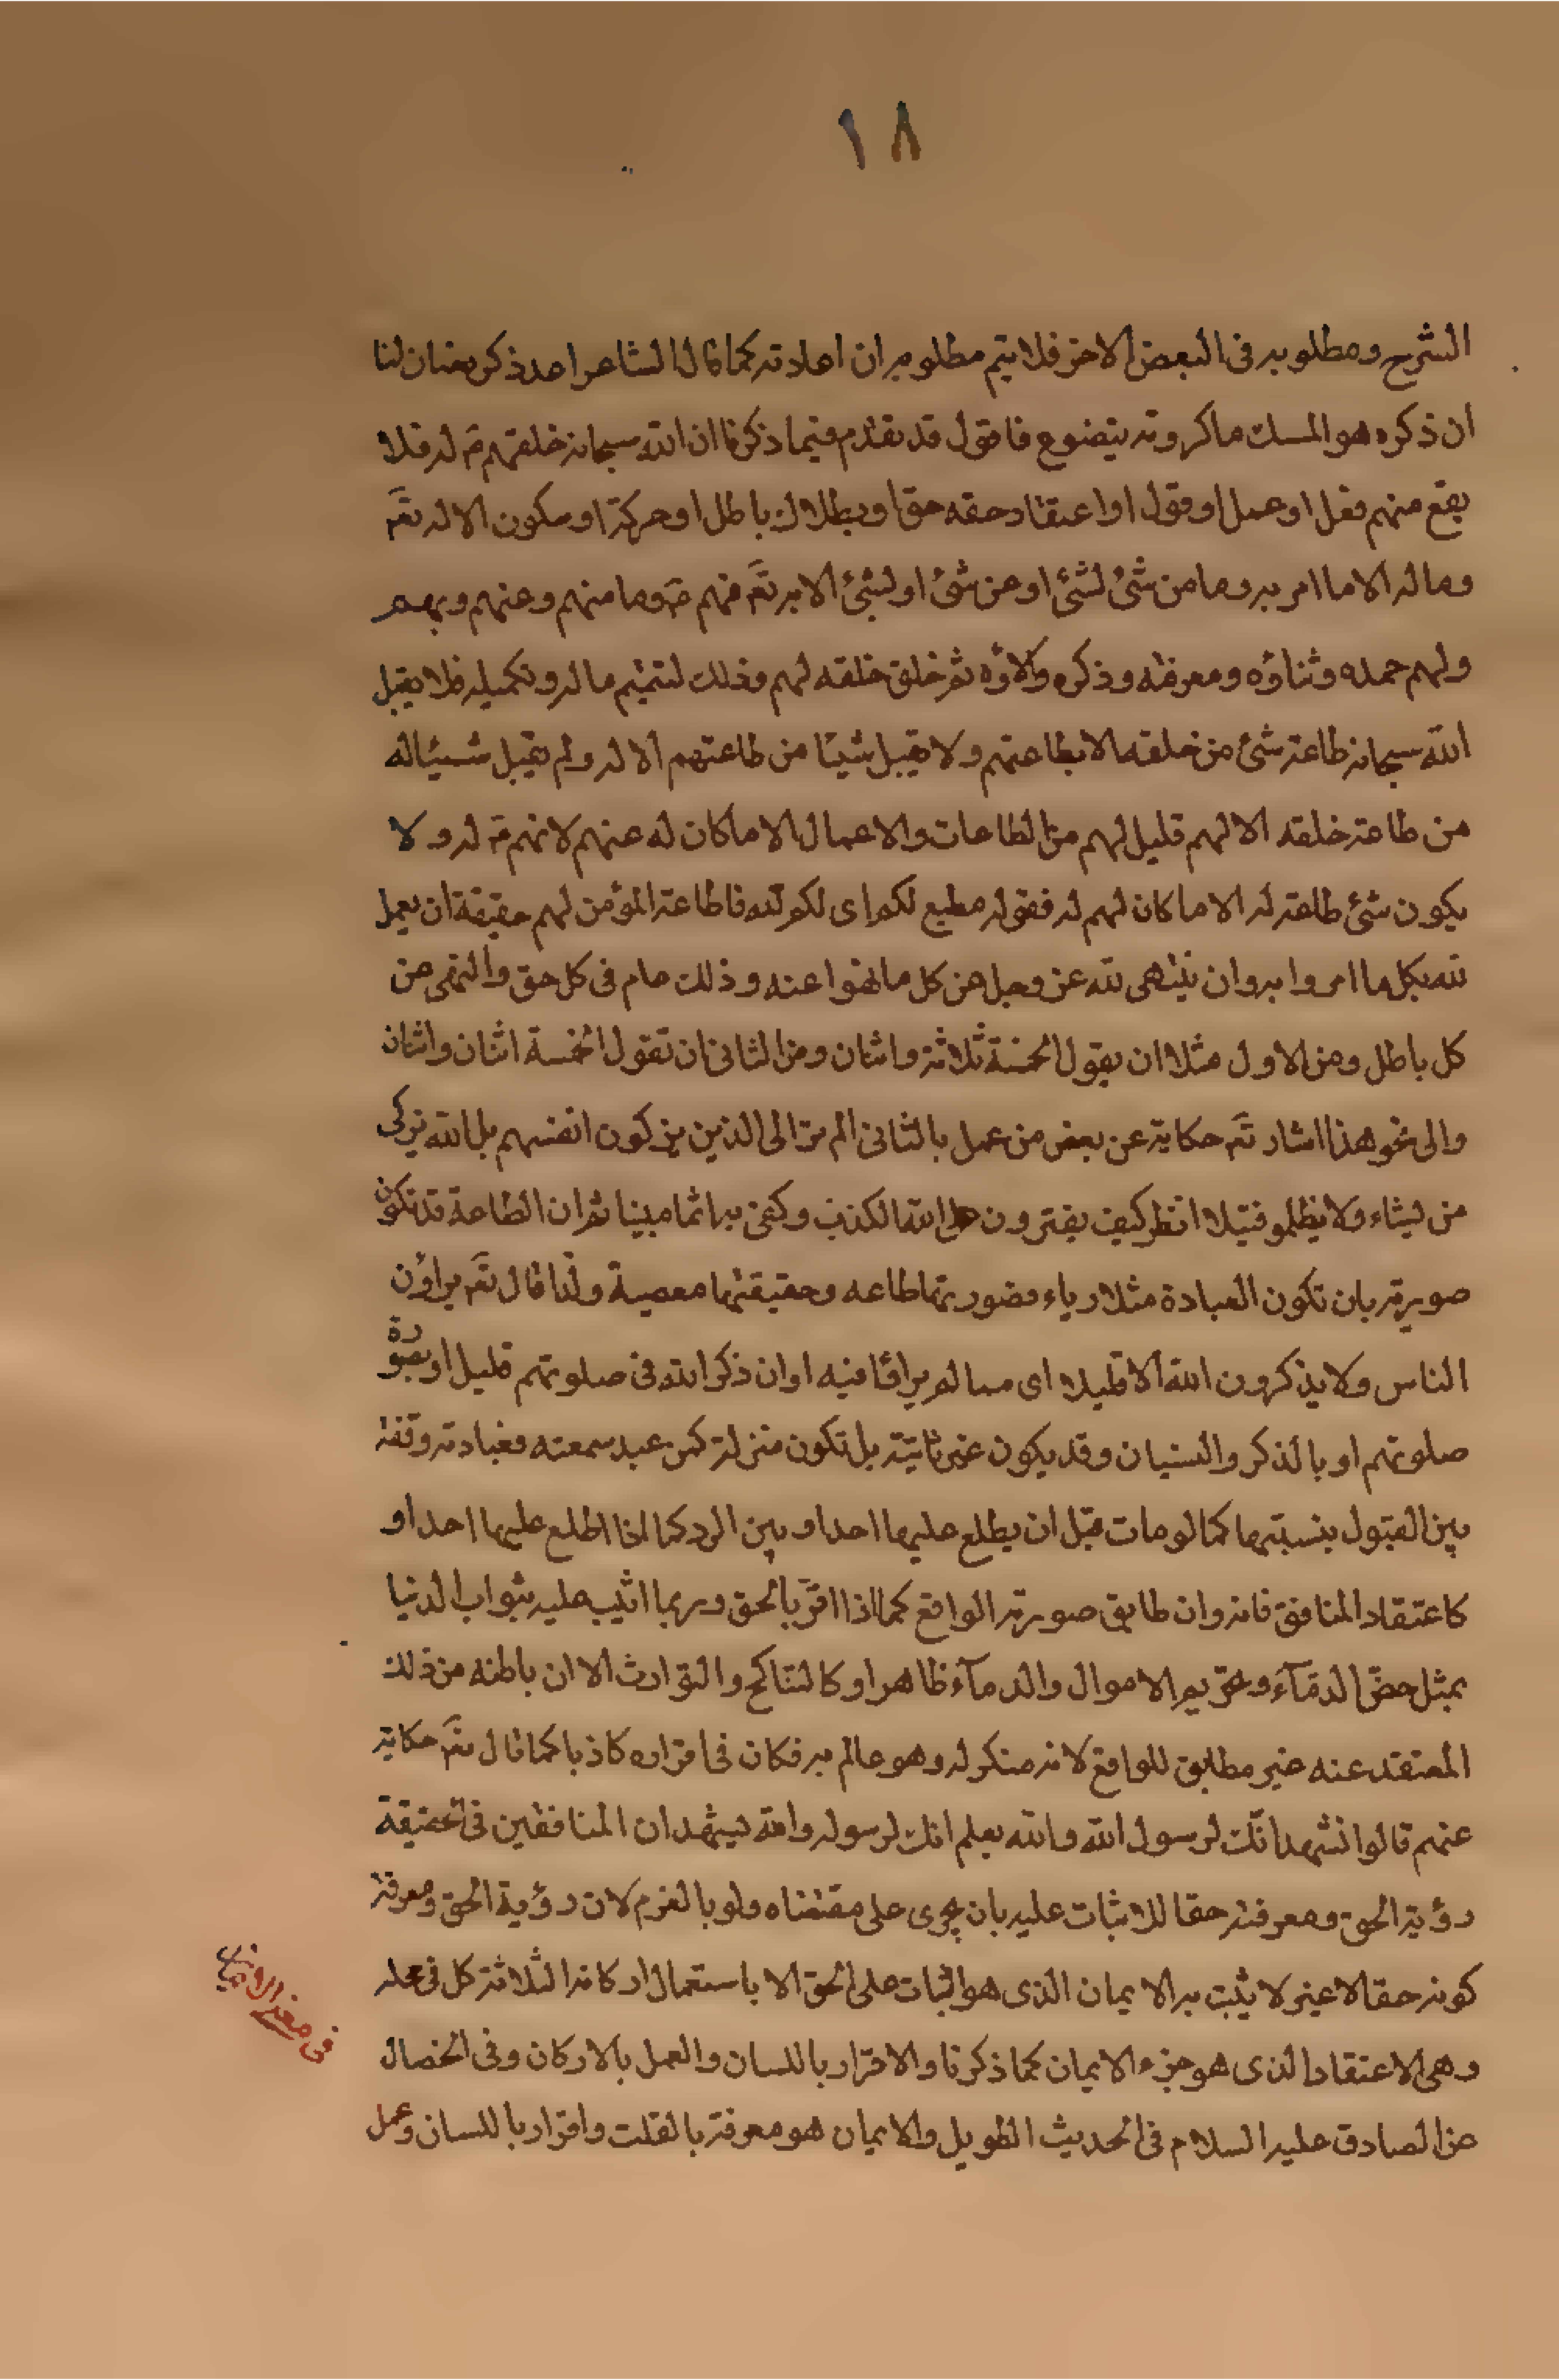 ١٨
الشرح ومطلوبه فى البعض الاخر فلا يتم مطلوبه ان اعادته كما قال الشاعر اعد ذكر نعمان لنا
ان ذكره هو المسك ما كررته يتضوع فاقول قد تقدم فيما ذكرنا ان الله سبحانه خلقهم له فلا
يقع منهم فعل او عمل او قول او اعتقاد حقه حق او بطلان باطل او حركة او سكون الا له تعَ
وما له الا ما امر به وما من شئ لشئ او عن شئ او لشئ الا به تعَ فهم مَ وما منهم وعنهم وبهم
ولهم حمده وثناؤه ومعرفته وذكره وآلاؤه ثم خلق خلقه لهم وذلك لتتميم ما له وتكميله فلا يقبل
الله سبحانه طاعة شئ من خلقه الا بطاعتهم ولا يقبل شيئا من طاعتهم الا له ولم يقبل شيئا له
من طاعة خلقه الا لهم قليل لهم من الطاعات والاعمال الا ما كان له عنهم لانهم مَ له ولا
يكون شئ طاعته له الا ما كان لهم له فقوله مطيع لكم اى لكم لله فاطاعة المؤمن لهم حقيقة ان يعمل
لله بكل ما امروا به وان ينتهى لله عز وجل عن كل ما نهوا عنه وذلك عام فى كل حق والنهى عن
كل باطل ومن الاول مثلا ان يقول الخمسة ثلاثة واثنان ومن الثانى ان تقول الخمسة اثنان واثنان
والى نحو هذا اشار تعَ حكاية عن بعض من عمل بالثانى الم تر الى الذين يزكون انفسهم بل الله يزكى
من يشاء ولا يظلمو فتيلا انظر كيف يفترون على الله الكذب وكفى به اثما مبينا ثم ان الطاعة قد تكون
صورية بان تكون العبادة مثلا رياء فصورتها طاعه وحقيقتها معصية ولذا قال تعَ يراؤن
الناس ولا يذكرون الله الا قليلا اى مما لم يراؤا فيه او ان ذكر الله فى صلوتهم قليل او بصورة
صلوتهم او بالذكر والنسيان وقد يكون غير ثابتة بل تكون متزلزلة كمن عبد سمعته فعبادته وقفة
بين القبول بنسبتها كما لو مات قبل ان يطلع عليها احد او بين الرد كما اذا اطلع عليها احد او
كاعتقاد المنافق فانه وان طابق صورته الواقع كما اذا اقرّ بالحق وربما اثيب عليه بثواب الدنيا
بمثل حقن الدمآء وتحريم الاموال والدمآء ظاهرا وكالتناكح والتوارث الا ان باطنه من ذلك
المعتقد عنه غير مطابق للواقع لانه منكر له وهو عالم به فكان فى اقراره كاذبا كما قال تعَ حكاية
عنهم قالوا نشهد انّك لرسول الله والله يعلم انك لرسوله والله يشهد ان المنافقين فى الحقيقة
رؤية الحق ومعرفته حقا للاثبات عليه بان يجرى على مقتضاه ولو بالعزم لان رؤية الحق ومعرفة
كونه حقا لا غير لا يثبت به الايمان الذى هو الثبات على الحق الا باستعمال اركانه الثلاثة كل فى محله
وهى الاعتقاد الذى هو جزء الايمان كما ذكرنا والاقرار باللسان والعمل بالاركان وفى الخصال
عن الصادق عليه السلام فى الحديث الطويل والايمان هو معرفة بالقلب واقرار باللسان وعمل
فى معنى الايمان